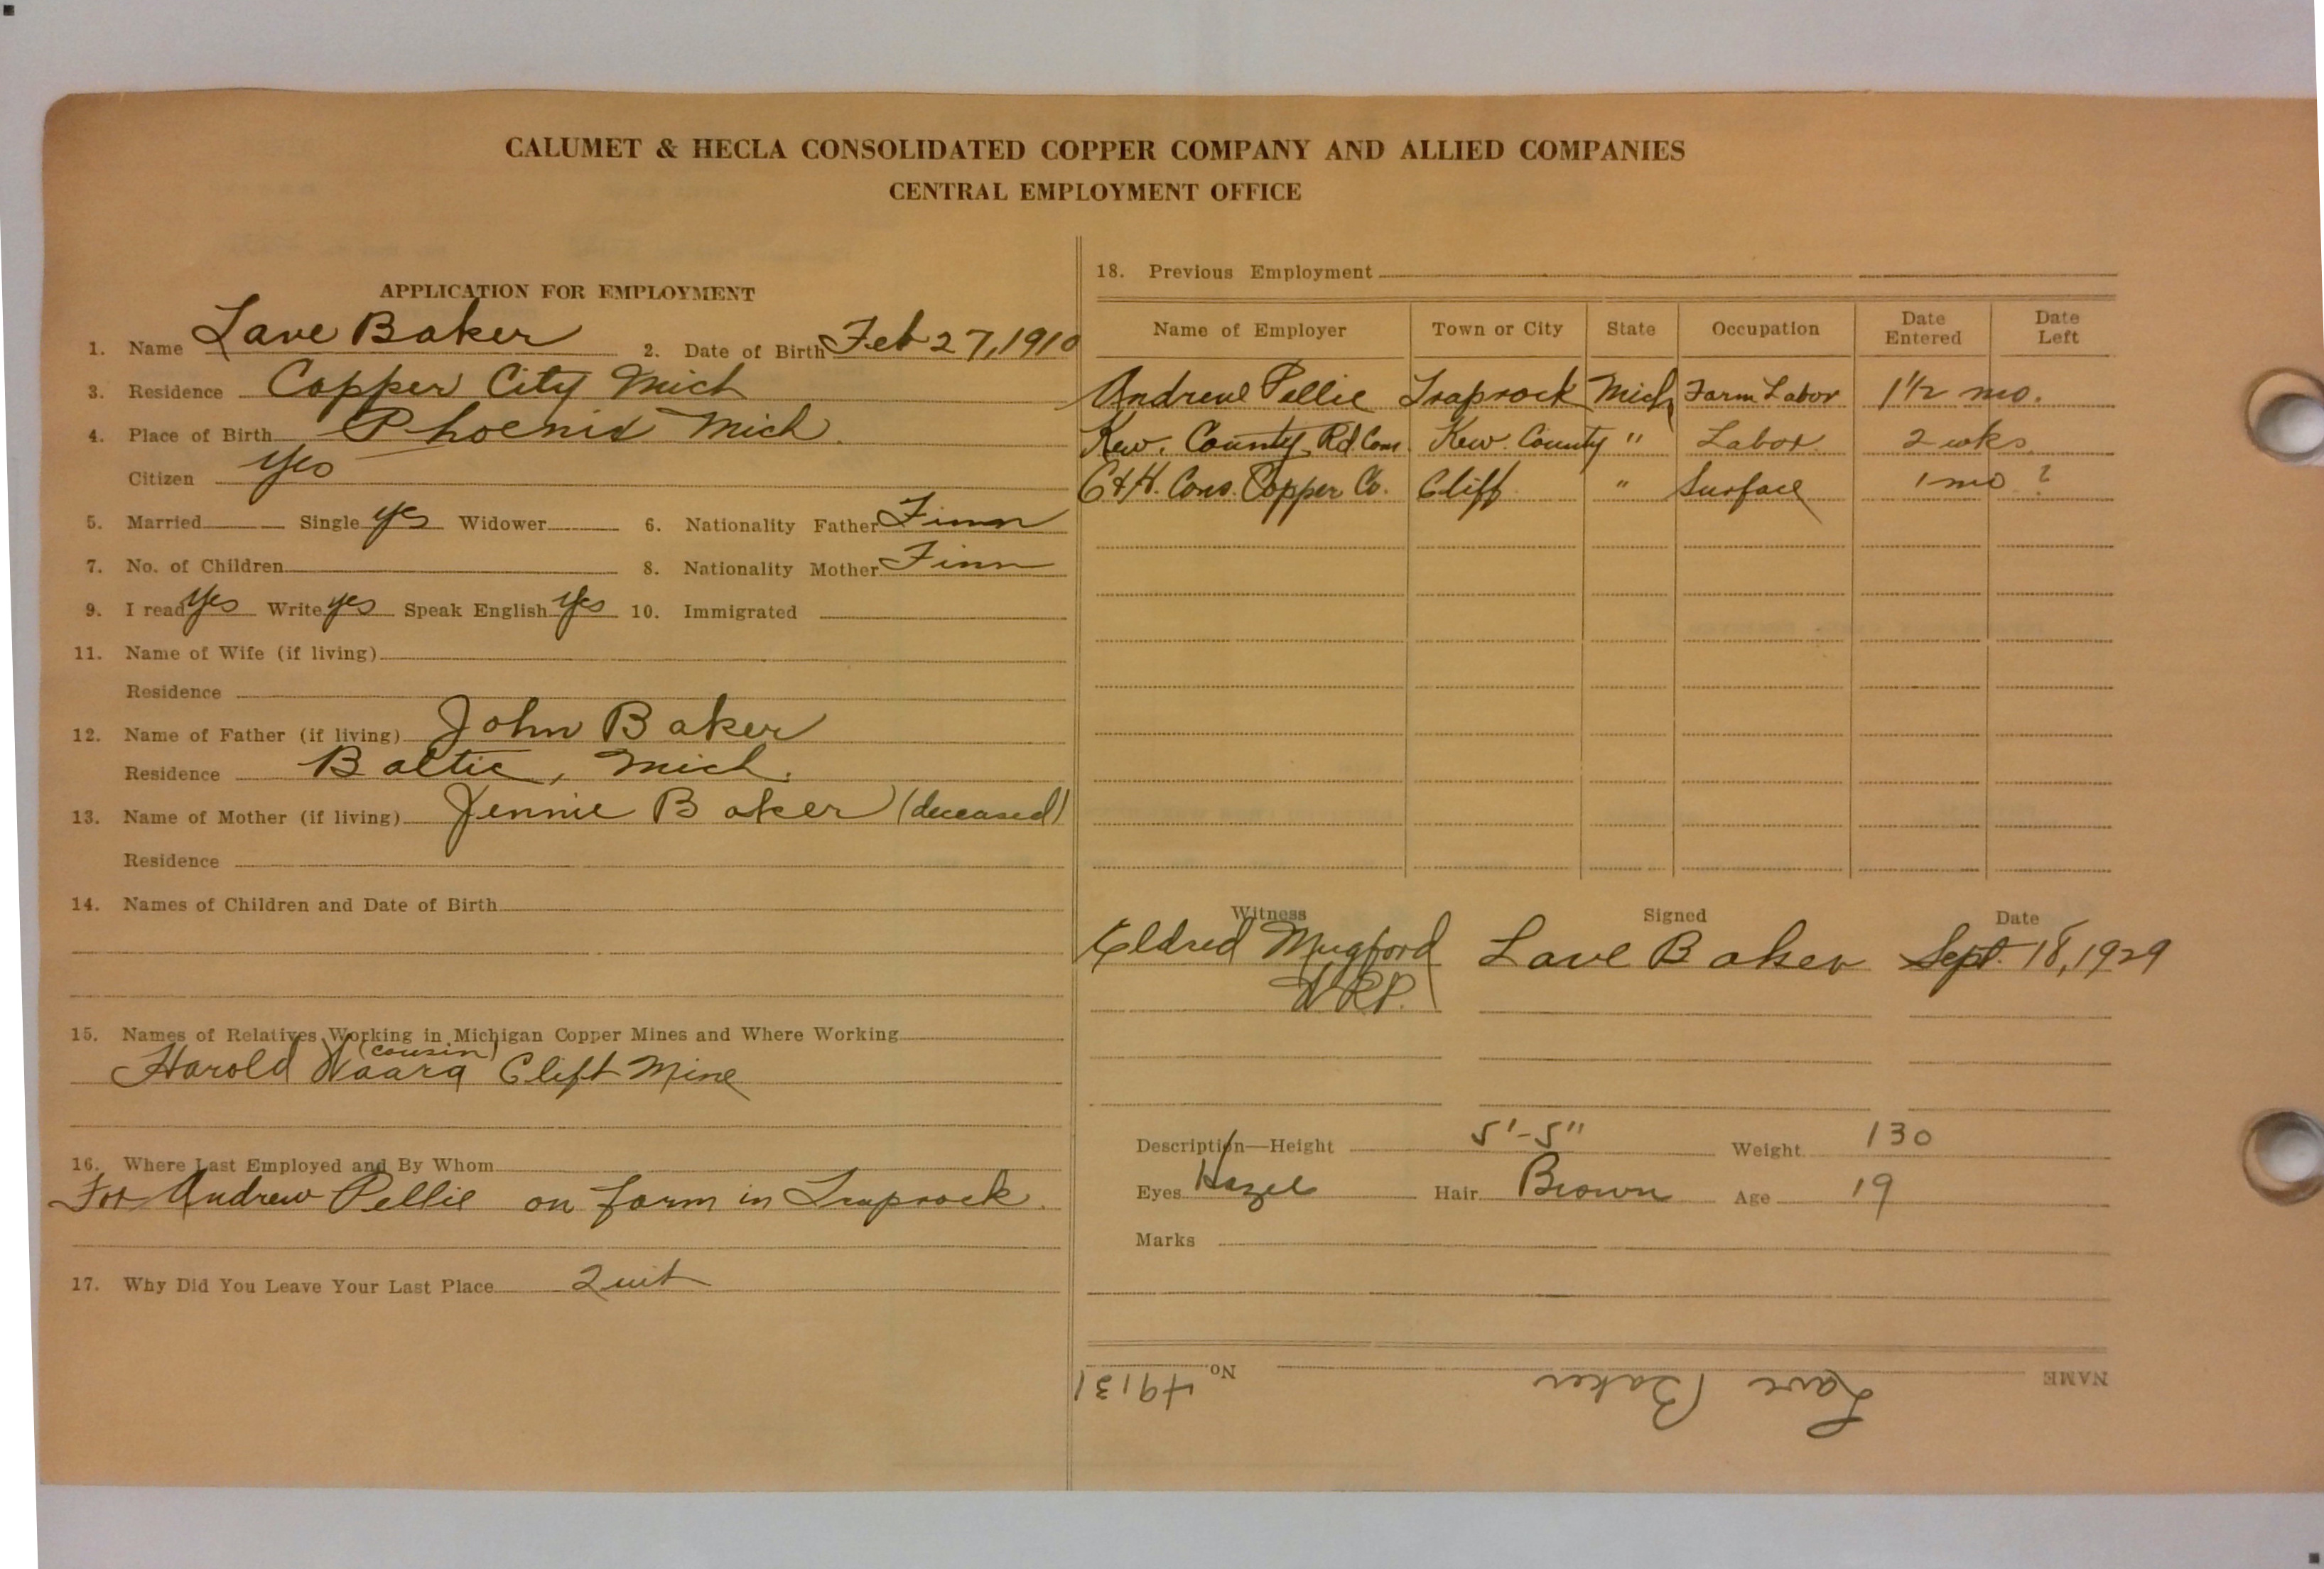 CALUMET & HECLA CONSOLIDATED COPPER COMPANY AND ALLIED COMPANIES
CENTRAL EMPLOYMENT OFFICE
APPLICATION FOR EMPLOYMENT
1. Name Lave Baker 2. Date of Birth Feb 27, 1910
3. Residence Copper City Mich
4. Place of Birth Phoenix Mich.
Citizen yes
5. Married Single yes Widower 6. Nationality Father Finn
7. No. of Children 8. Nationality Mother Finn
9. I read yes Write yes Speak English yes 10. Immigrated
11. Name of Wife (if living)
Residence
12. Name of Father (if living) John Baker
Residence Baltic, Mich.
13. Name of Mother (if living) Jennie Baker (deceased)
Residence
14. Names of Children and Date of Birth
15. Names of Relatives Working in Michigan Copper Mines and Where Working
(cousin)
Harold Waara Clift Mine
16. Where Last Employed and By Whom
For Andrew Pellie on farm in Traprock.
17. Why Did You Leave Your Last Place Quit
18. Previous Employment
Name of Employer Town or City State Occupation Date Entered Date Left
Andrew Pellie Traprock Mich Farm Labor 1 1/2 mo.
Kew. County Rd. Com. Kew. County " Labor. 2 wks.
C & H. Cons. Copper Co. Cliff " Surface 1 mo ?
Witness Signed Date
Eldred Mugford Lave Baker Sept. 18, 1929
WRP.
Description—Height 5'-5" Weight 130
Eyes Hazel Hair Brown Age 19
Marks
NAME Lave Baker No. 49131